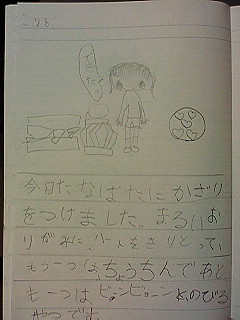 今日たなばたにかざり
をつけました。まるいお
りがみに、ハートをきりとって、
もう一つはちょうちんであと
も一つはビョンビョンとのびる
やつです